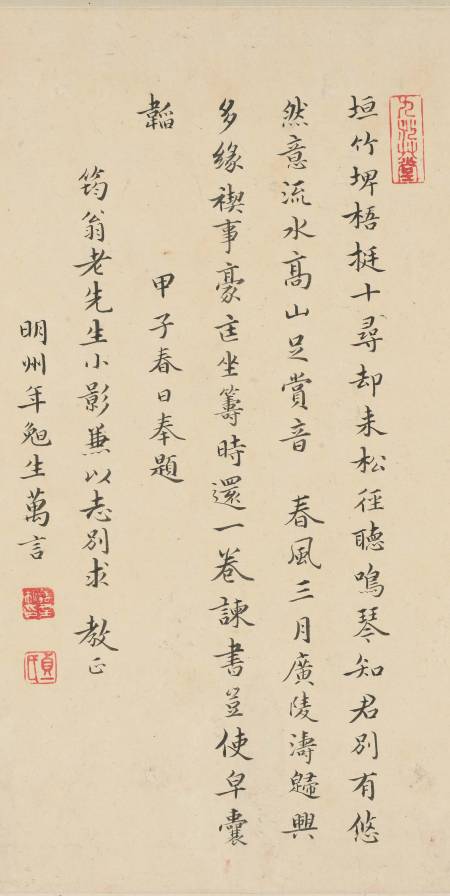 垣竹埤梧挺十尋却來松徑聽鳴琴知君別有悠
然意流水高山足賞音 春風三月廣陵濤歸興
多緣禊事豪匡坐籌時還一卷諫書豈使皁囊
韜 甲子春日奉題
筠翁老先生小影兼以志別求 教正
明州年勉生萬言